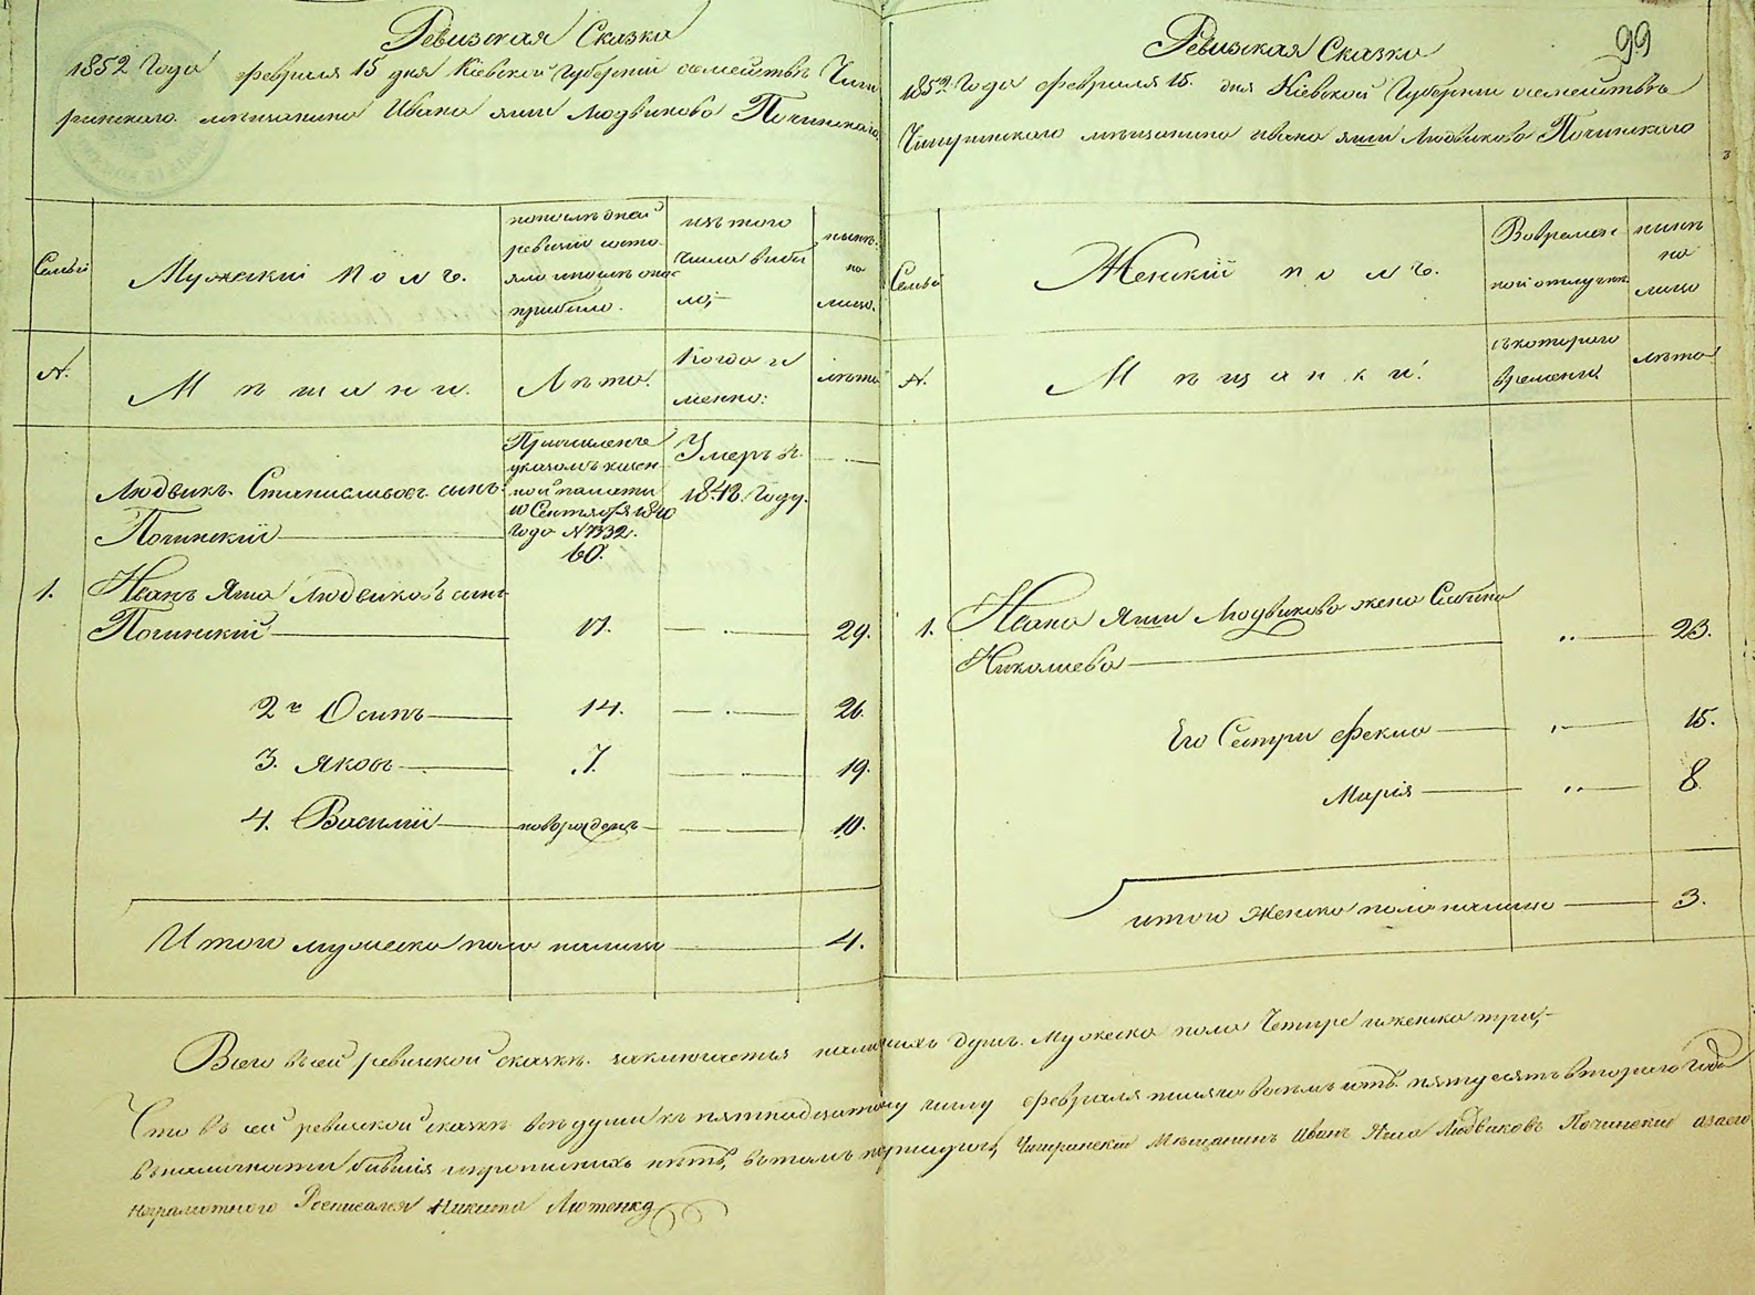 Ревизская Сказка
1852 Года февраля 15 дня Кіевской Губерніи о семействѣ Чиги
ринскаго мѣщанина Ивана яна Людвикова Починскаго
Семьи
Мужескій полъ.
по послѣдней
ревизіи состо
яло и послѣ оной
прибыло.
изъ того
числа выбы
ло,
нынѣ
на
лицо.
№.
Мѣщани.
Лѣта.
Когда и
менно:
лѣта
Людвикъ Станиславовъ сынъ
Починскій
Причисленъ
указомъ казен
ной палаты
10 Сентября 1840
Года №7332.
60.
Умеръ въ
1848. Году.
1. Иванъ Яна Людвиковъ сынъ
Починскій 17. 29.
2й Осипъ 14. 26.
3. Яковъ 7. 19.
4. Василій новорожденъ 10.
Итого мужеска пола налицо 4.
99
Ревизская Сказка
1852 Года февраля 15. дня Кіевской Губерніи о семействѣ
Чигиринскаго мѣщанина Ивана яна Людвикова Починскаго
Семьи
Женскій полъ.
Во времен
ной отлучкѣ
нынѣ
на
лицо
№.
Мѣщанки.
съ котораго
времени.
лѣта
1. Ивана Яна Людвикова жена Сабина
Николаева 23.
Его Сестри Фекла 15.
Марія 8
итого Женска пола налицо 3.
Всего въ сей ревизской сказкѣ заключается наличныхъ душъ Мужеска пола Четире и женска три,
Что въ сей ревизской сказкѣ всѣ души къ пятнадцатому числу февраля тысяча восемь сотъ пятдесятъ втораго года
въ наличности бывшія и прописныхъ нѣтъ, въ томъ Чигиринскій Мѣщанинъ Иванъ Яна Людвиковъ Починскій а за его
неграмотного Росписался Никита Лютенко